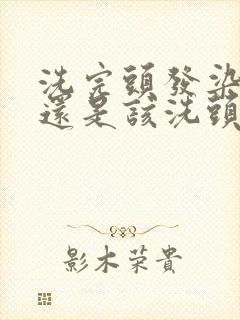 洗完頭發染
還是該洗頭
影木荣貴